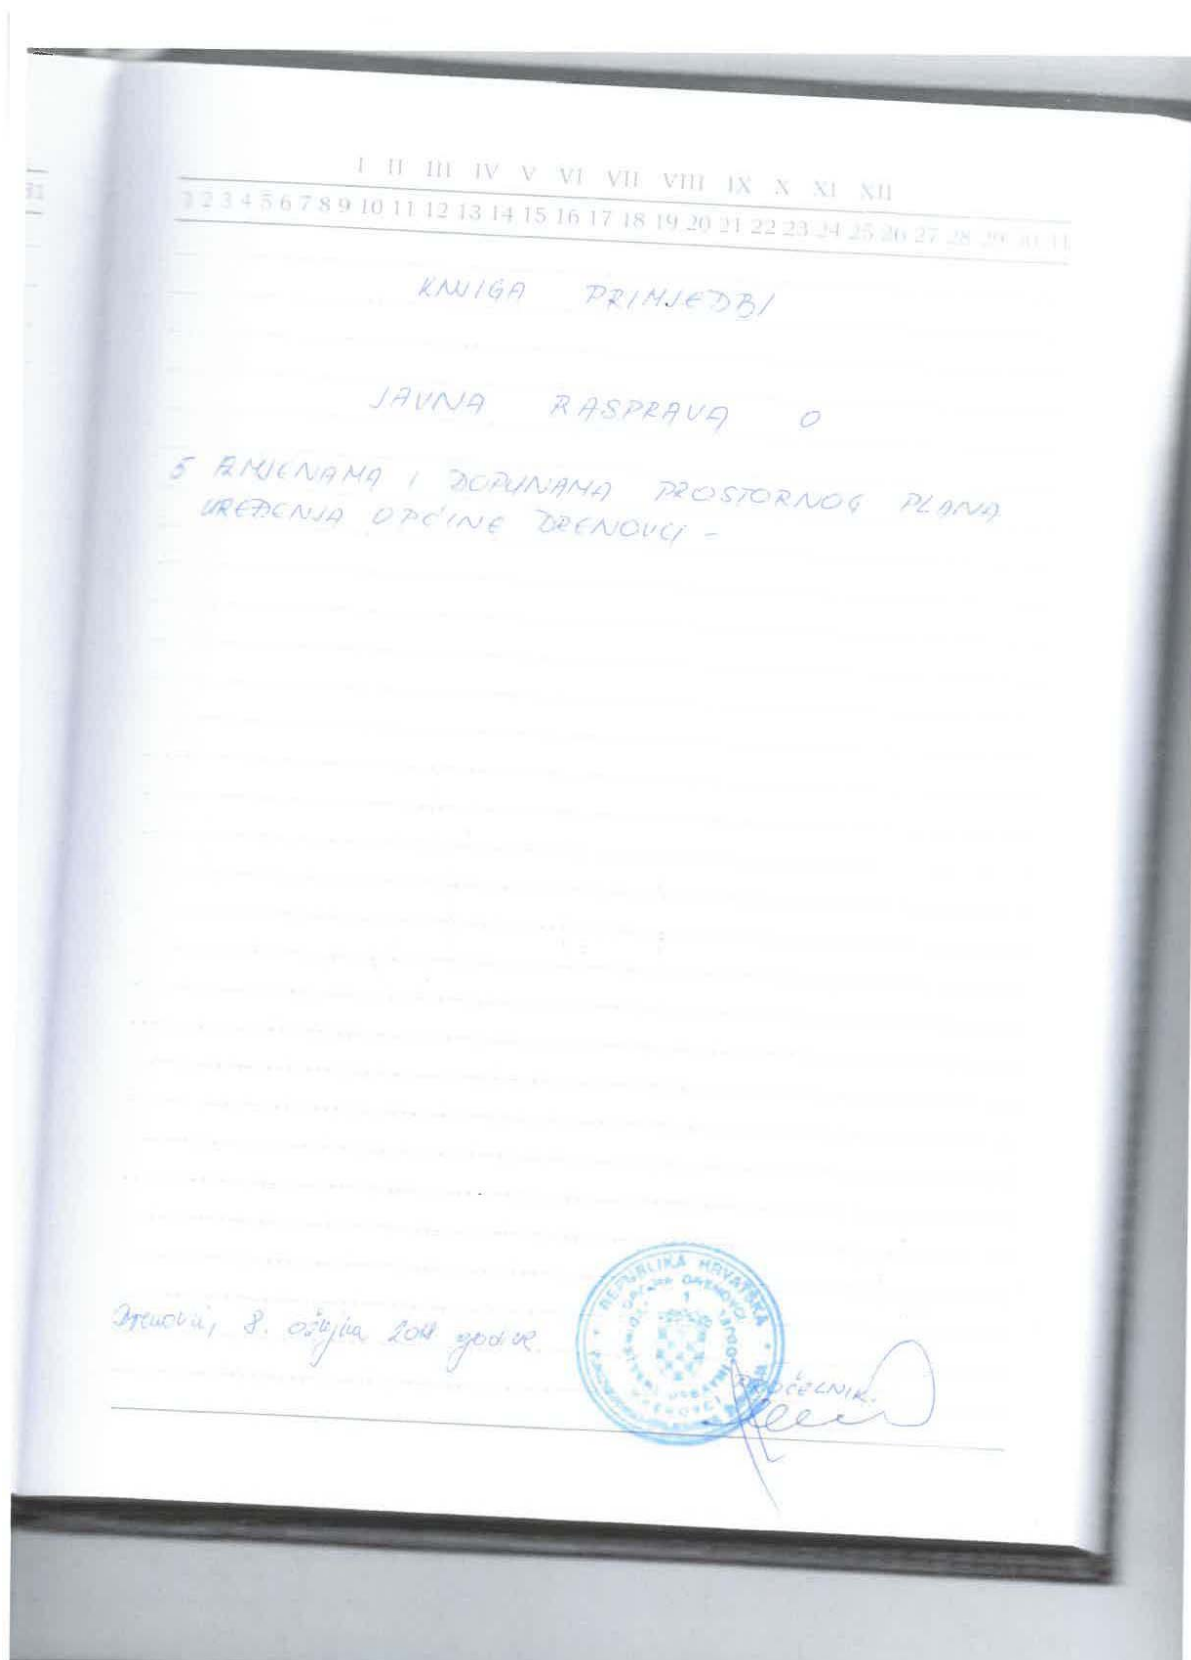 31
I II III IV V VI VII VIII IX X XI XII
1 2 3 4 5 6 7 8 9 10 11 12 13 14 15 16 17 18 19 20 21 22 23 24 25 26 27 28 29 30 31
KNJIGA PRIMJEDBI
JAVNA RASPRAVA O
5 IZMJENAMA I DOPUNAMA PROSTORNOG PLANA
UREĐENJA OPĆINE DRENOVCI -
REPUBLIKA HRVATSKA
OPĆINA DRENOVCI
1
Drenovci, 8. ožujka godine.
PROČELNIK: